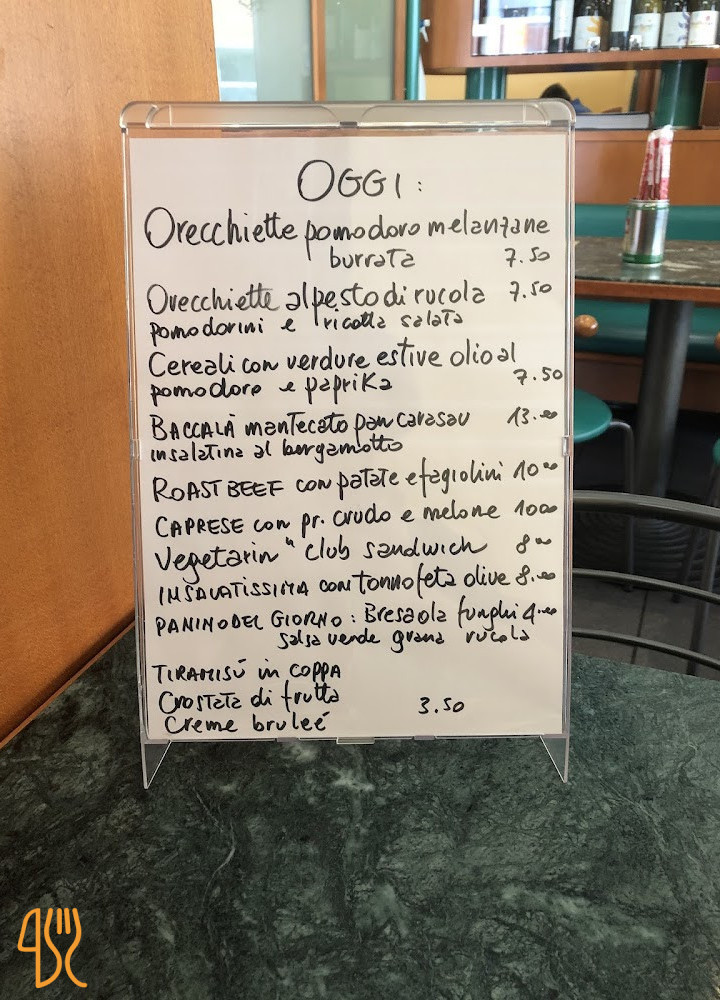 OGGI:
Orecchiette pomodoro melanzane
burrata 7.50
Orecchiette al pesto di rucola 7.50
pomodorini e ricotta salata
Cereali con verdure estive olio al
pomodoro e paprika 7.50
BACCALÀ mantecato pan carasau 13.00
insalatina al bergamotto
ROAST BEEF con patate e fagiolini 10.00
CAPRESE con pr. crudo e melone 10.00
Vegetarin " club sandwich 8.00
INSALATISSIMA con tonno feta olive 8.00
PANINO DEL GIORNO: Bresaola funghi 4.00
salsa verde grana rucola
TIRAMISÚ in COPPA
Crostata di frutta
Creme bruleé 3.50